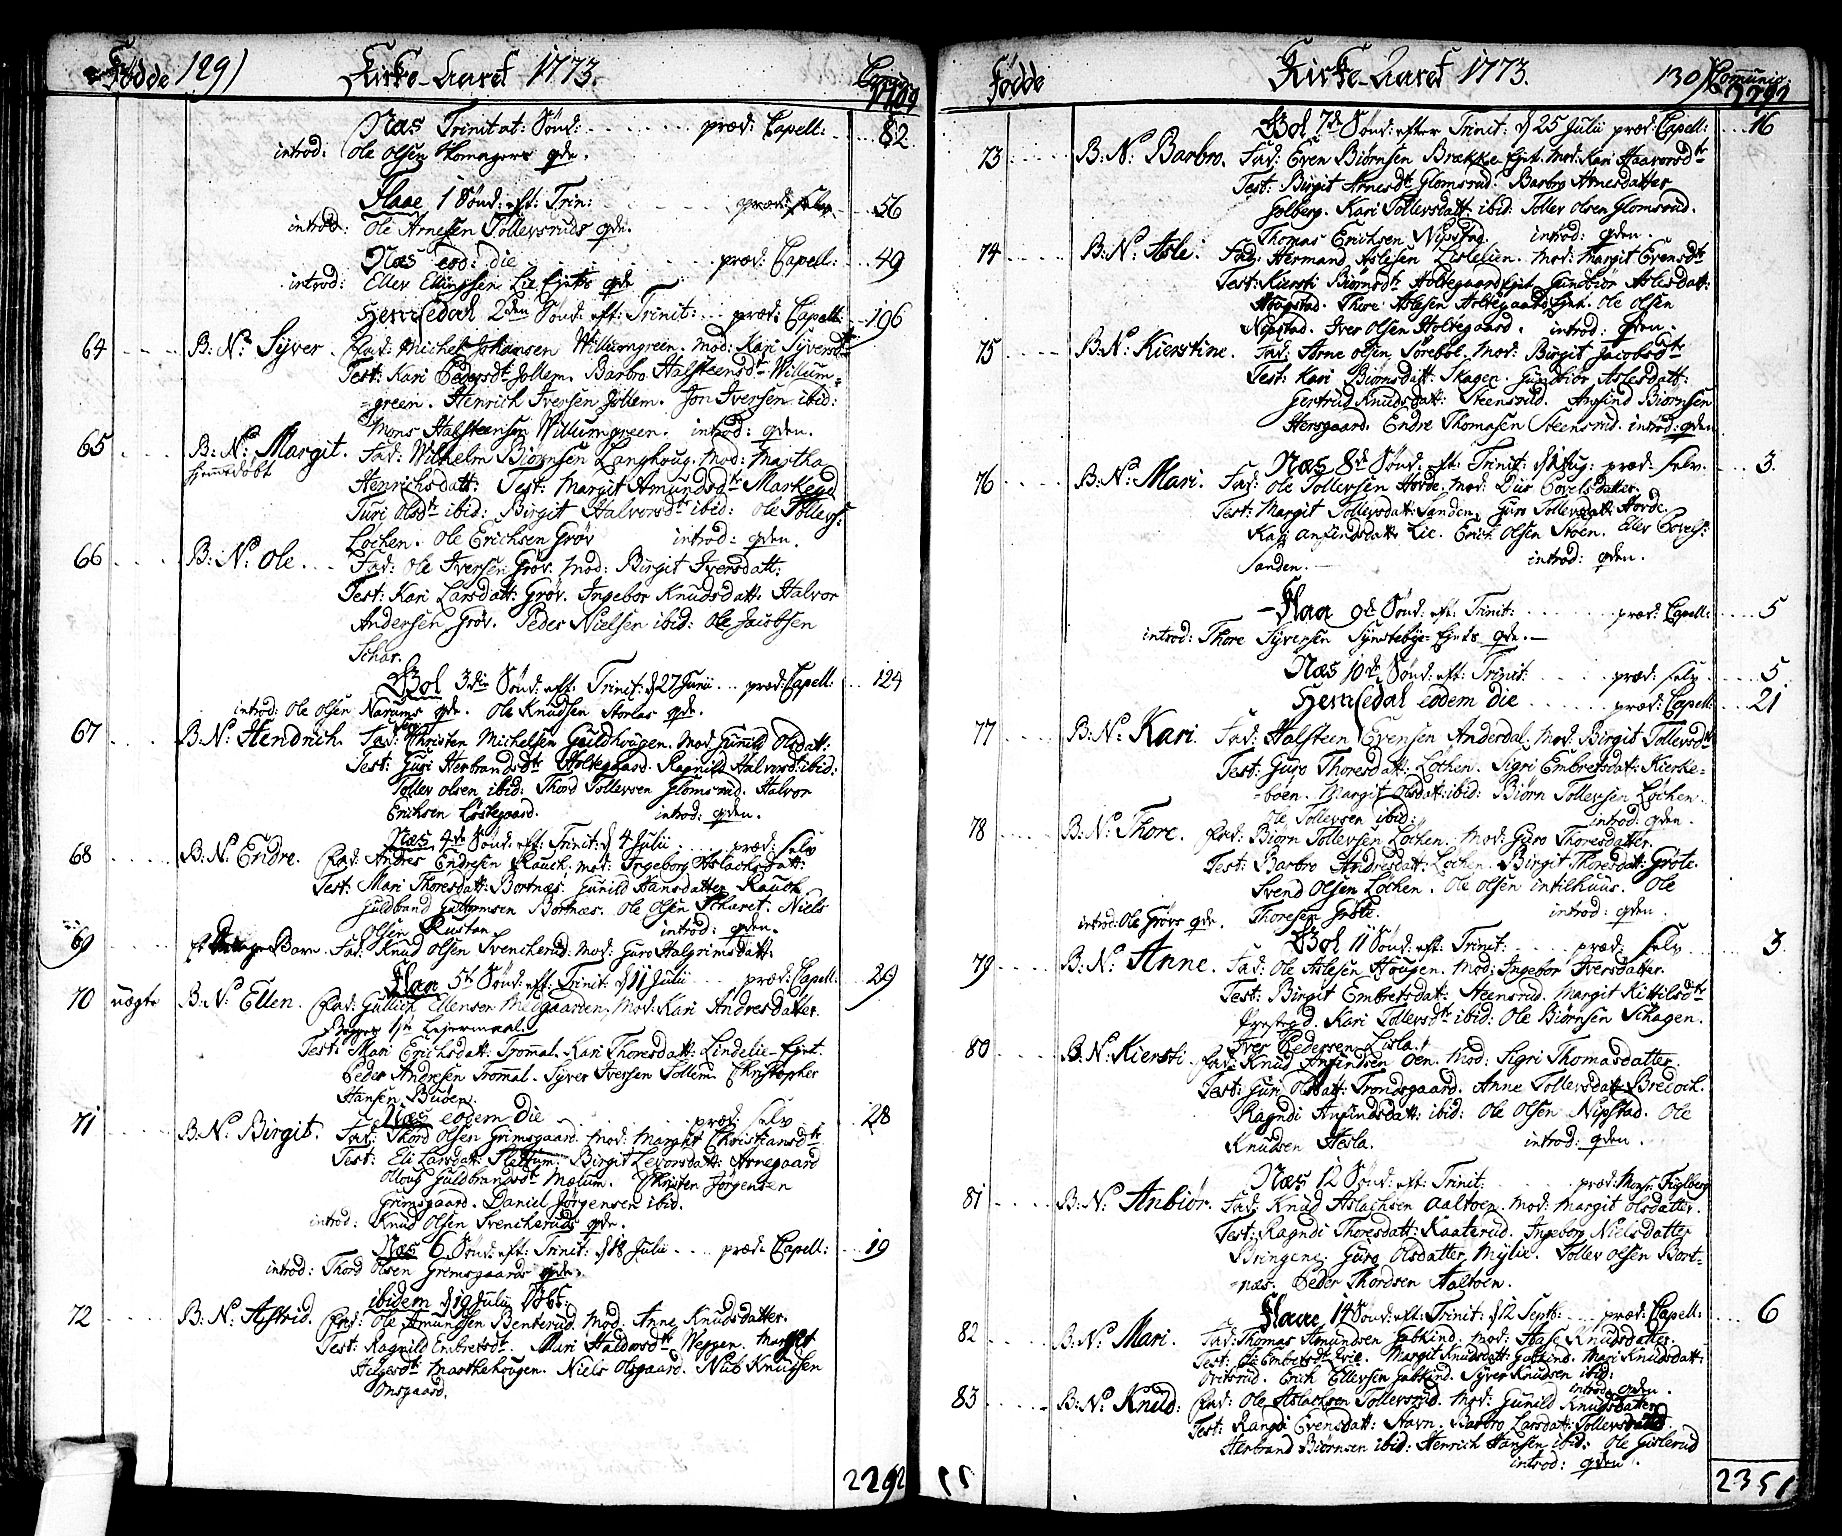 Fødde 129) Kirke-Aaret 1773.
Næs Trinitat: Sønd: præd: Capell: 82
introd: Ole Olsen qdn.
Flaae 1 Sønd: eft: Trin: præd: selv 56
introd: Ole Arnesen Tollevsruds qdn.
Næs eod: die præd: Capell: 49
introd: Eller Ellingsen Lie Ejets qdn
Hemsedal 2den Sønd: eft: Trinit: præd: Capell: 196
64 B: N: Syver. Fad: Michel Johansen Willumgreen. Mod: Kari Syversdtr
Test: Kari Pedersdtr Jollem. Barbro Halsteensdtr Willum-
green. Henrich Iversen Jollem. Jon Iversen ibid:
Mons Halsteensen Willumgreen. introd: qden.
65 B: N: Margit. Fad: Wilhelm Biørnsen Langhoug. Mod: Martha
hiemmedøbt Henrichsdatt: Test: Margit Amundsdtr Markegd
Turi Olsdtr ibid: Birgit Halvorsdtr ibid: Ole Tollevs:
Løchen. Ole Erichsen Grøv introd: qden.
66 B: N: Ole. Fad: Ole Iversen Grøv. Mod: Birgit Iversdatt:
Test: Kari Larsdatt: Grøv. Ingebor Knudsdatt: Halvor
Andersen Grøv. Peder Nielsen ibid: Ole Jacobsen
Schar.
Gol 3die Sønd: eft: Trinit: d 27 Junii præd: Capell: 124
introd: Ole Olsen Narums qdn. Ole Knudsen Storlas qdn.
67 B: N: Hendrich. Fad: Christen Michelsen Guldhougen. Mod: Gunnild Olsdatt:
Test: Guri Herbrandsdtr Holtegaard. Ragnild Halvorsdt: ibid:
Tollev Olsen ibid: Thord Tollevsen Glomsrud. Halvor
Erichsen Løstegaard. introd: qden.
Næs 4de Sønd: eft: Trinit: d 4 Julii præd: selv
68 B: N: Endre. Fad: Andres Endresen Rauch. Mod: Ingeborg Aslachsdatt:
Test: Mari Thoresdatt: Bortnæs. Gunild Hansdatter Rauch.
Guldbrand Guttormsen Bortnæs. Ole Olsen Scharet. Niels
Olsen Rustan introd: qden.
69 Barn. Fad: Knud Olsen Svencherud. Mod: Guro Halgrimsdatt:
Flaa 5te Sønd: eft: Trinit: d 11 Julii præd: Capell: 29
70 uægte B: N: Ellen. Fad: Gullich Ellensen Medgaarden. Mod: Kari Andresdatter.
Begges 1ste Lejermaal.
Test: Mari Erichsdatt: Trommal. Kari Thoresdatt: Lindelie-Ejet.
Peder Andresen Trommal. Syver Iversen Tollem. Christopher
Hansen Buøen.
Næs eodem die præd: selv 28
71 B: N: Birgit. Fad: Thord Olsen Grimsgaard. Mod: Margit Christiansdtr
Test: Eli Larsdatt: Slettum. Birgit Levorsdatt: Arnegaard
Oloug Guldbrandsdtr Mælum. Christen Jørgensen
Grimsgaard. Daniel Jørgensen ibid.
introd: Knud Olsen Svencheruds qdn.
Næs 6 Sønd: eft: Trinit: d 18 Julii præd: Capell: 19
introd: Thord Olsen Grimsgaards qdn.
ibidem d 19 Julii
72 B: N: Astrid. Fad: Ole Amundsen Benterud. Mod: Anne Knudsdatter.
Test: Ragnild Embretsdtr. Mari Haldorsdtr Weppen.
Helgesdtr Marthehougen. Niels Olsgaard. Nub Knudsen
Onsgaard.
2292
Fødde Kirke-Aaret 1773. 130) Communic:
2292
Gol 7de Sønd: efter Trinit: d 25 Julii præd: Capell: 16
73 B: N: Barbro. Fad: Even Biørnsen Brække Ejet. Mod: Kari Haavorsdtr
Test: Birgit Arnesdtr Glomsrud. Barbro Arnesdatter
Golberg. Kari Tollevsdatt: ibid: Tollev Olsen Glomsrud.
Thomas Erichsen Nipstad. introd: qden.
74 B: N: Asle. Fad: Hermand Aslesen Lislelien. Mod: Margit Evensdtr
Test: Kiersti Biørnsdtr Holtegaard Ejet. Gundbiør Aslesdatt:
Thore Aslesen Holtegaards Ejet. Ole Olsen
Nipstad. Iver Olsen Holtegaard. introd: qden.
75 B: N: Kierstine. Fad: Arne Olsen Sørebøl. Mod: Birgit Jacobsdtr
Test: Kari Biørnsdatt: Skagen. Gundbiør Aslesdatt:
Gertrud Knudsdatt: Steensrud. Anfind Biørnsen
Hersgaard. Endre Thomasen Steensrud. introd: qden
Næs 8de Sønd: eft: Trinit: d 1 Aug: præd: selv. 3.
76 B: N: Mari. Fad: Ole Tollevsen Horde. Mod: Dur Povelsdatter.
Test: Margit Tollevsdatt: Sanden. Guro Tollevsdatt: Horde.
Kari Anfindsdatt: Lie. Erich Olsen Støen. Elev Povels:
Sanden. introd: qden.
Flaa 9de Sønd: eft: Trinit: præd: Capell: 5
introd: Thore Syversen Synstebye-Ejets qdn.
Næs 10de Sønd: eft: Trinit: præd: selv. 5.
Hemsedal eodem die præd: Capell: 21
77 B: N: Kari. Fad: Halsteen Evensen Anderdal. Mod: Birgit Tollevsdtr
Test: Guro Thoresdatt: Løchen. Sigri Embretsdat: Kierke-
bøen. Margit Olsdat: ibid: Biørn Tollevsen Løchen.
Ole Tollevsen ibid: introd: qden.
78 B: N: Thore. Fad: Biørn Tollevsen Løchen. Mod: Guro Thoresdatter.
Test: Barbro Andresdatt: Løchen. Birgit Thoresdatt: Grøte.
Svend Olsen Løchen. Ole Olsen Intilhuus. Ole
introd: Ole Grøvs qdn. Thoresen Grøte. introd: qden.
Gol 11 Sønd: eft: Trinit: præd: selv 3.
79 B: N: Anne. Fad: Ole Aslesen Hougen. Mod: Ingebor Iversdatter.
Test: Birgit Embretsdat: Steensrud. Margit Kittilsdtr
Kari Tollevsdtr ibid: Ole Biørnsen Schagen.
Iver Pedersen Lisla.
80 B: N: Kiersti. Fad: Knud Anfindsen Øen. Mod: Sigri Thomasdatter.
Test: Guri Olsdatt: Trondsgaard. Anne Tollevsdat: Bredoch.
Ragndi Anfindsdatt: ibid: Ole Olsen Nipstad. Ole
Knudsen Hesla. introd: qden.
Næs 12 Sønd: eft: Trinit: præd: Mons: Fuglberg
81 B: N: Anbiør. Fad: Knud Aslachsen Aaltoen. Mod: Margit Olsdatter.
Test: Ragndi Thoresdatt: Kaaterud. Ingeborg Nielsdatter
Bringene. Guro Olsdatter Mylie. Tollev Olsen Bort-
næs. Peder Thordsen Aaltoen.
Flaae 14 Sønd: eft: Trinit: d 12 Septb: præd: Capell: 6
82 B: N: Mari. Fad: Thomas Amundsen Gubkind. Mod: Aase Knudsdatter.
Test: Ole Embretsdtr Margit Knudsdatt: Gubkind. Mari Knudsdatt:
Erich Ellevsen Gubkind. Syver Knudsen ibid:
introd: qden.
83 B: N: Knud: Fad: Ole Aslachsen Tollevsrud. Mod: Gunild Knudsdatter
Test: Rangdi Evensdatt: Stavn. Barbro Larsdatt: Tollevsrud
Herbrand Biørnsen ibid: Henrich Hansen ibid: Ole Gislerud
introd: qden.
2351